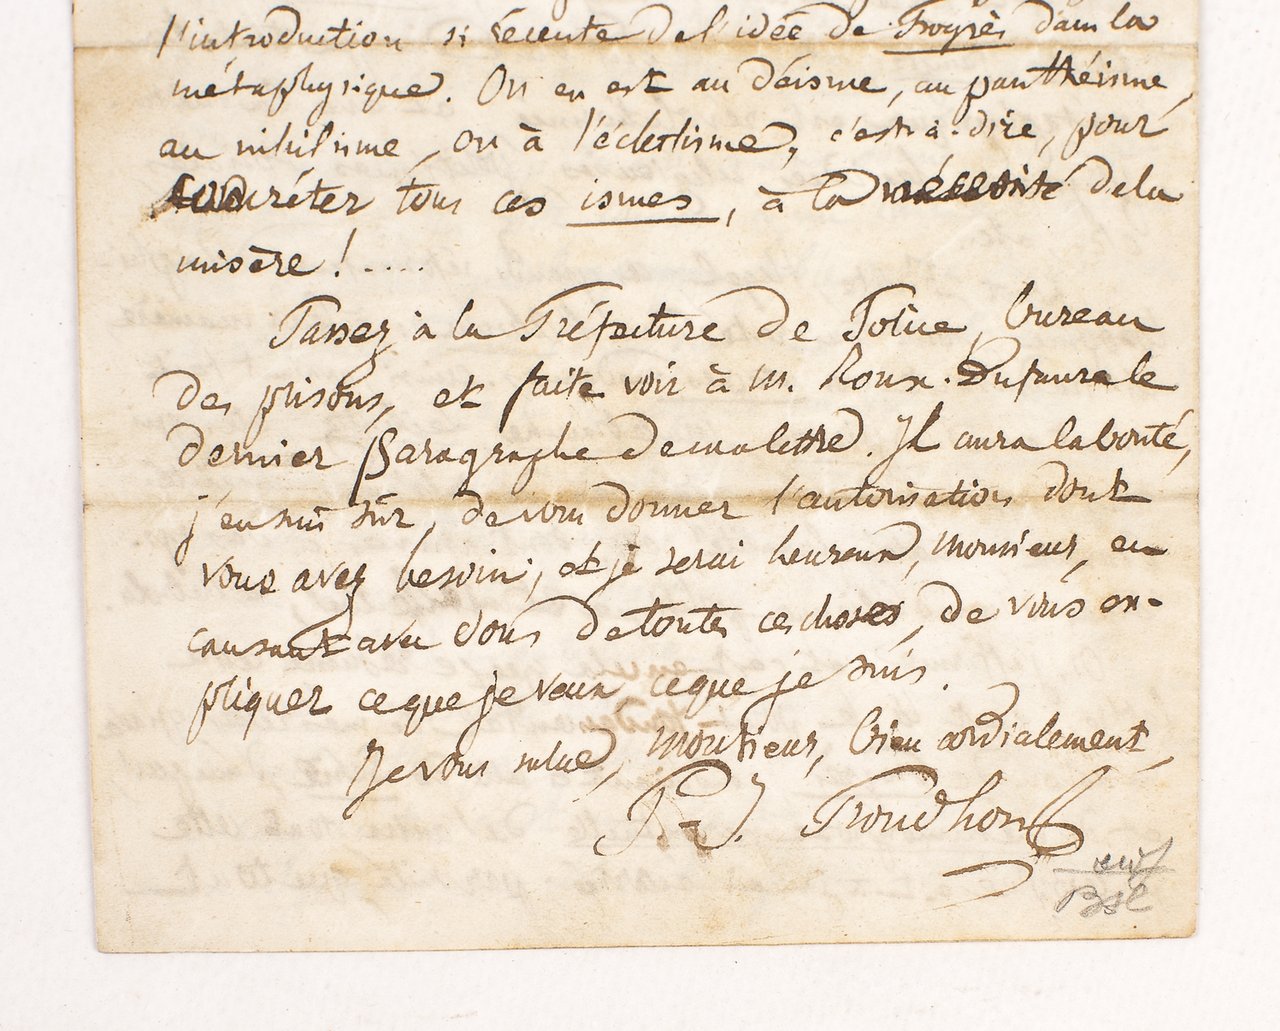 l'introduction si récente de l'idée de Progrès dans la
métaphysique. On en est au déisme, au panthéisme,
au nihilisme, ou à l'éclectisme, c'est-à-dire, pour
concréter tous ces ismes, à la nécessité de la
misère !....
Passez à la Préfecture de Police, bureau
des prisons, et faite voir à M. Roux-Dufaure le
dernier paragraphe de ma lettre. Il aura la bonté,
j'en suis sûr, de vous donner l'autorisation dont
vous avez besoin; et je serai heureux, Monsieur, en
causant avec vous de toutes ces choses, de vous ex-
pliquer ce que je veux ce que je suis.
Je vous salue, Monsieur, bien cordialement,
P-J. Proudhon